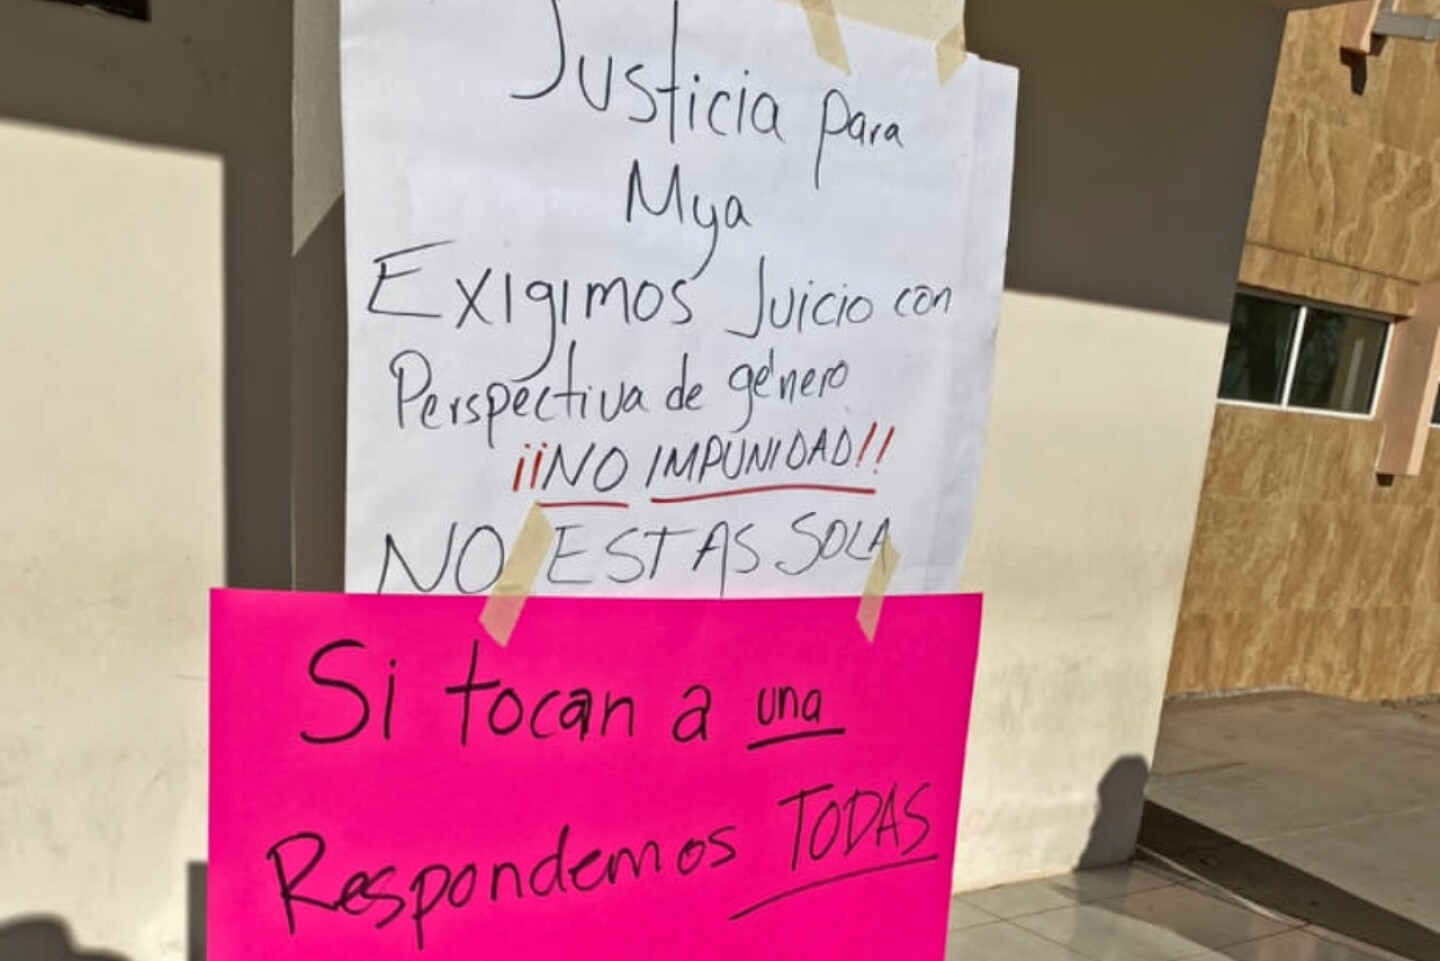 Justicia para
Mya
Exigimos Juicio con
Perspectiva de género
¡¡NO IMPUNIDAD!!
NO ESTAS SOLA
Si tocan a una
Respondemos TODAS